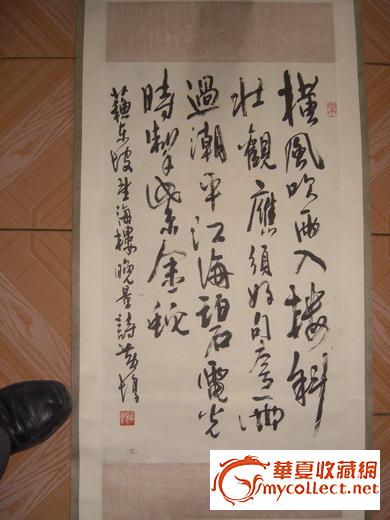 横風吹雨入楼斜
壮觀應須好句夸雨
過潮平江海碧電光
時掣紫金蛇
蘇东坡望海樓晚景詩
華夏收藏網
mycollect.net